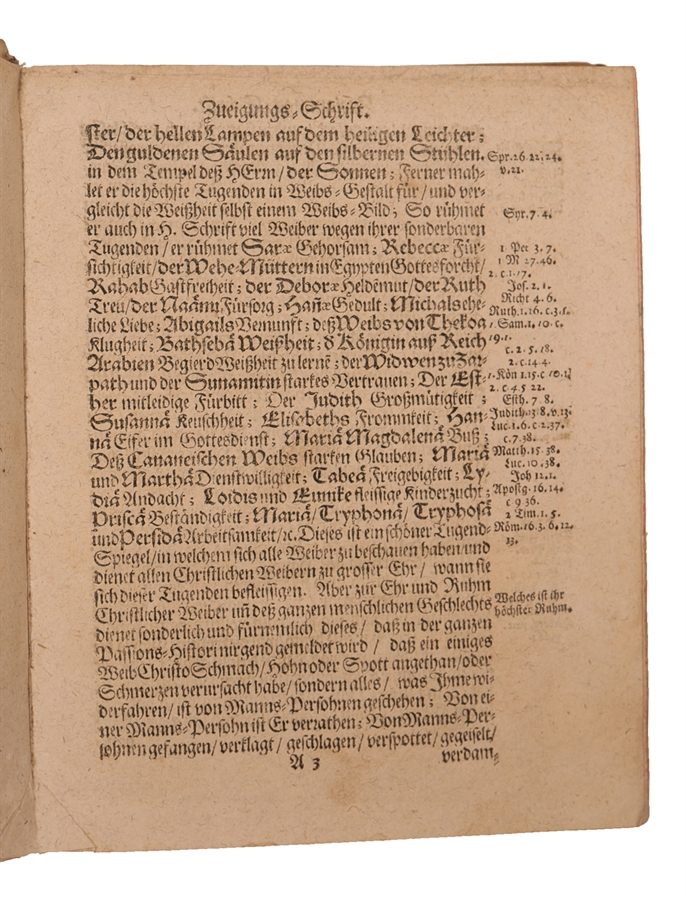 Zueigungs-Schrift.
ster/ der hellen Lampen auf dem heiligen Leichter;
Den guldenen Säulen auf den silbernen Stühlen. Spr. 26. 22. 24.
in dem Tempel deß HErrn/ der Sonnen; Ferner mah- v. 21.
let er die höchste Tugenden in Weibs-Gestalt für/ und ver-
gleicht die Weißheit selbst einem Weibs-Bild; So rühmet Spr. 7. 4.
er auch in H. Schrift viel Weiber wegen ihrer sonderbaren
Tugenden/ er rühmet Saræ Gehorsam; Rebeccæ Für- 1 Pet 3. 7.
sichtigkeit/ der Wehe-Müttern in Egypten Gottesforcht/ 1 M 27. 46.
Rahab Gastfreiheit; der Deboræ Heldēmut/ der Ruth 2. c. 1. 17. Jos. 2. 1.
Treu/ der Naämi Fürsorg; Hañæ Gedult; Michals ehe- Richt 4. 6.
liche Liebe; Abigails Vernunft; deß Weibs von Thekoa Ruth. 1. 16. c. 3. 1. 1 Sam. 1. 10. c.
Klugheit; Bathsebä Weißheit; d' Königin auß Reich 19. 1.
Arabien Begierd Weißheit zu lernē; der Widwen zu Zar- c. 2. 5. 18. 2. c. 14. 4.
path und der Sunamitin starkes Vertrauen; Der Est- 1. Kön 1. 15. c 10. 1.
her mitleidige Fürbitt; Der Judith Großmütigkeit; 2. c 4. 5 22. Esth. 7 8.
Susannä Keuschheit; Elisabeths Frommkeit; Han- Judith 13 8. v. 13.
nä Eifer im Gottesdienst; Mariä Magdalenä Buß; Luc. 1. 6. c. 2. 37. c. 7. 38.
Deß Cananeischen Weibs starken Glauben; Mariä Matth. 15. 38.
und Marthä Dienstwilligkeit; Tabeä Freigebigkeit; Ly- Luc. 10. 38. Joh 12. 1.
diä Andacht; Loidis und Eunike fleissige Kinderzucht; Apostg. 16. 14. c 9 36.
Priscä Beständigkeit; Mariä/ Tryphonä/ Tryphosä 2 Tim. 1. 5.
und Persidä Arbeitsamkeit/ ꝛc. Dieses ist ein schöner Tugend- Röm. 16. 3. 6. 12.
Spiegel/ in welchem sich alle Weiber zu beschauen haben und 13.
dienet allen Christlichen Weibern zu grosser Ehr/ wann sie
sich dieser Tugenden befleissigen. Aber zur Ehr und Ruhm
Christlicher Weiber uñ deß ganzen menschlichen Geschlechts Welches ist ihr
dienet sonderlich und fürnemlich dieses/ daß in der ganzen höchster Ruhm.
Passions-Histori nirgend gemeldet wird/ daß ein einiges
Weib Christo Schmach/ Hohn oder Spott angethan/ oder
Schmerzen verursacht habe/ sondern alles/ was Ihme wi-
derfahren/ ist von Manns-Persohnen geschehen; Von ei-
ner Manns-Persohn ist Er verrathen; Von Manns-Per-
sohnen gefangen/ verklagt/ geschlagen/ verspottet/ gegeiselt/
A 3 verdam-